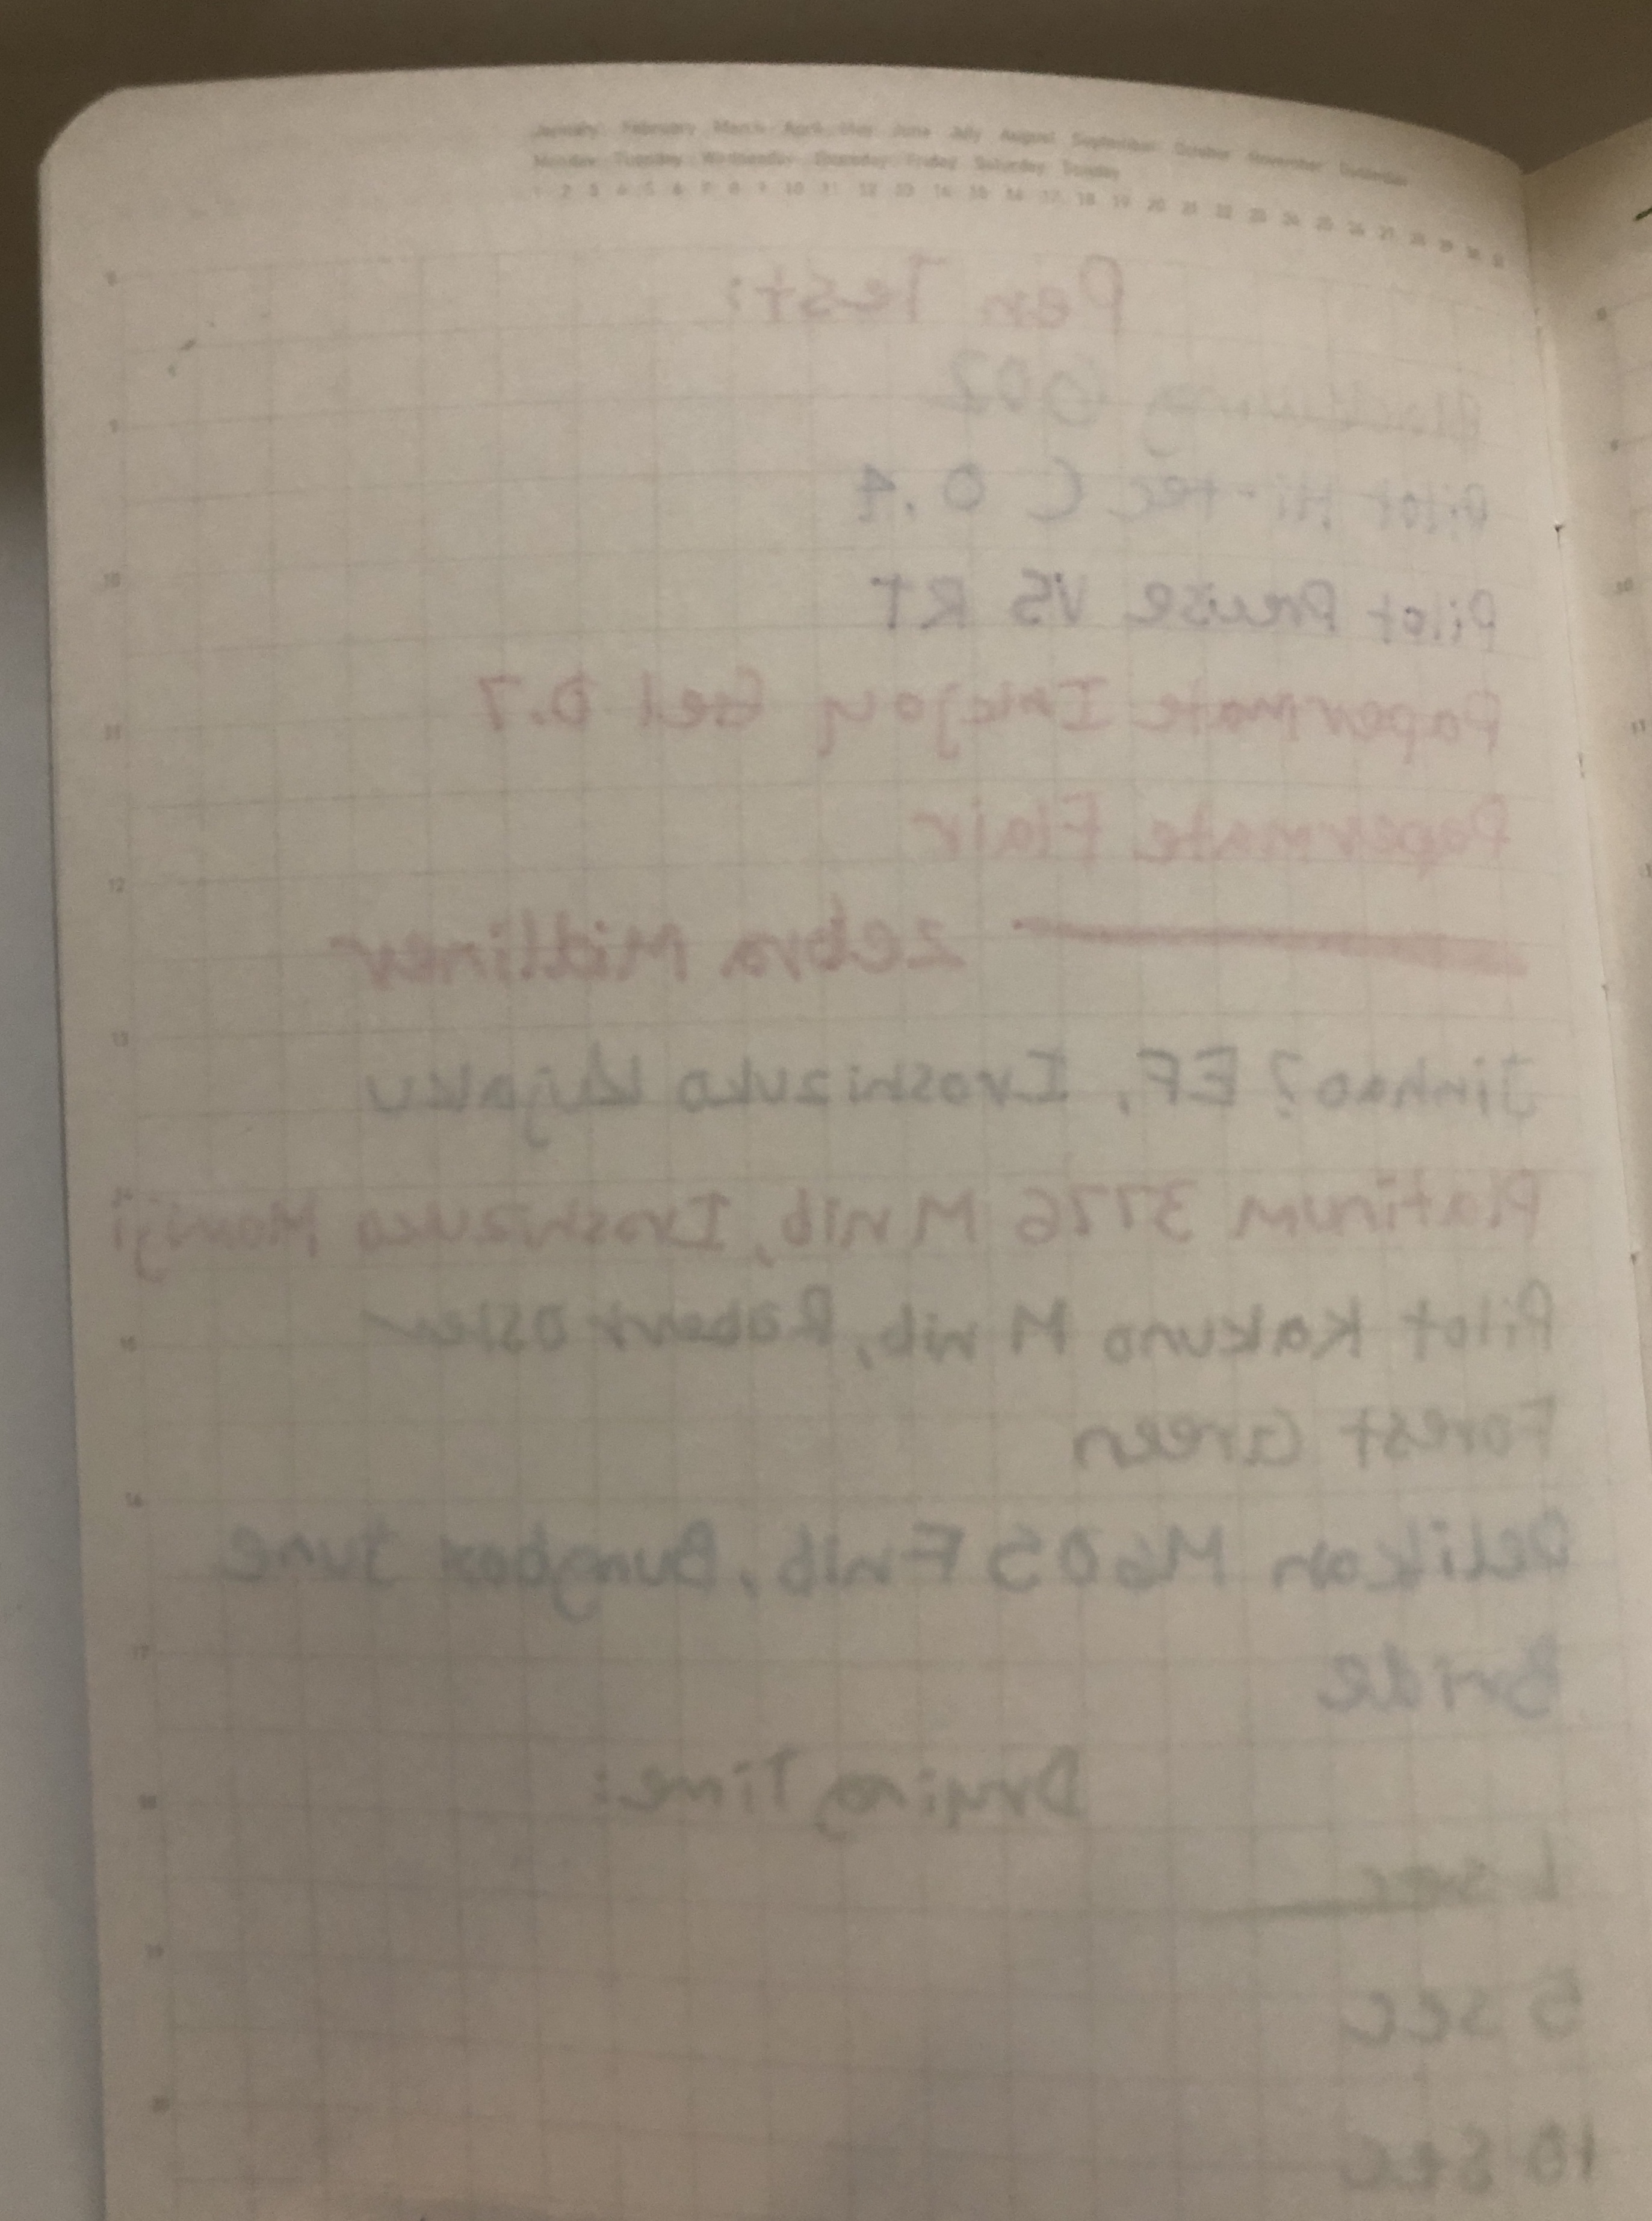 January February March April May June July August September October November December
Monday Tuesday Wednesday Thursday Friday Saturday Sunday
1 2 3 4 5 6 7 8 9 10 11 12 13 14 15 16 17 18 19 20 21 22 23 24 25 26 27 28 29 30 31
Pen Test:
8
Blackwing 602
9
Pilot Hi-tec C 0.4
10
Pilot Precise V5 RT
Papermate Inkjoy Gel 0.7
11
Papermate Flair
12
Zebra Midliner
13
Jinhao? EF, Iroshizuku Kujaku
14
Platinum 3776 M nib, Iroshizuku Momiji
Pilot Kakuno M nib, Robert Oster
15
Forest Green
16
Pelikan M605 F nib, Bungbox June
17
Bride
Drying Time:
18
1 sec
19
5 sec
20
10 sec